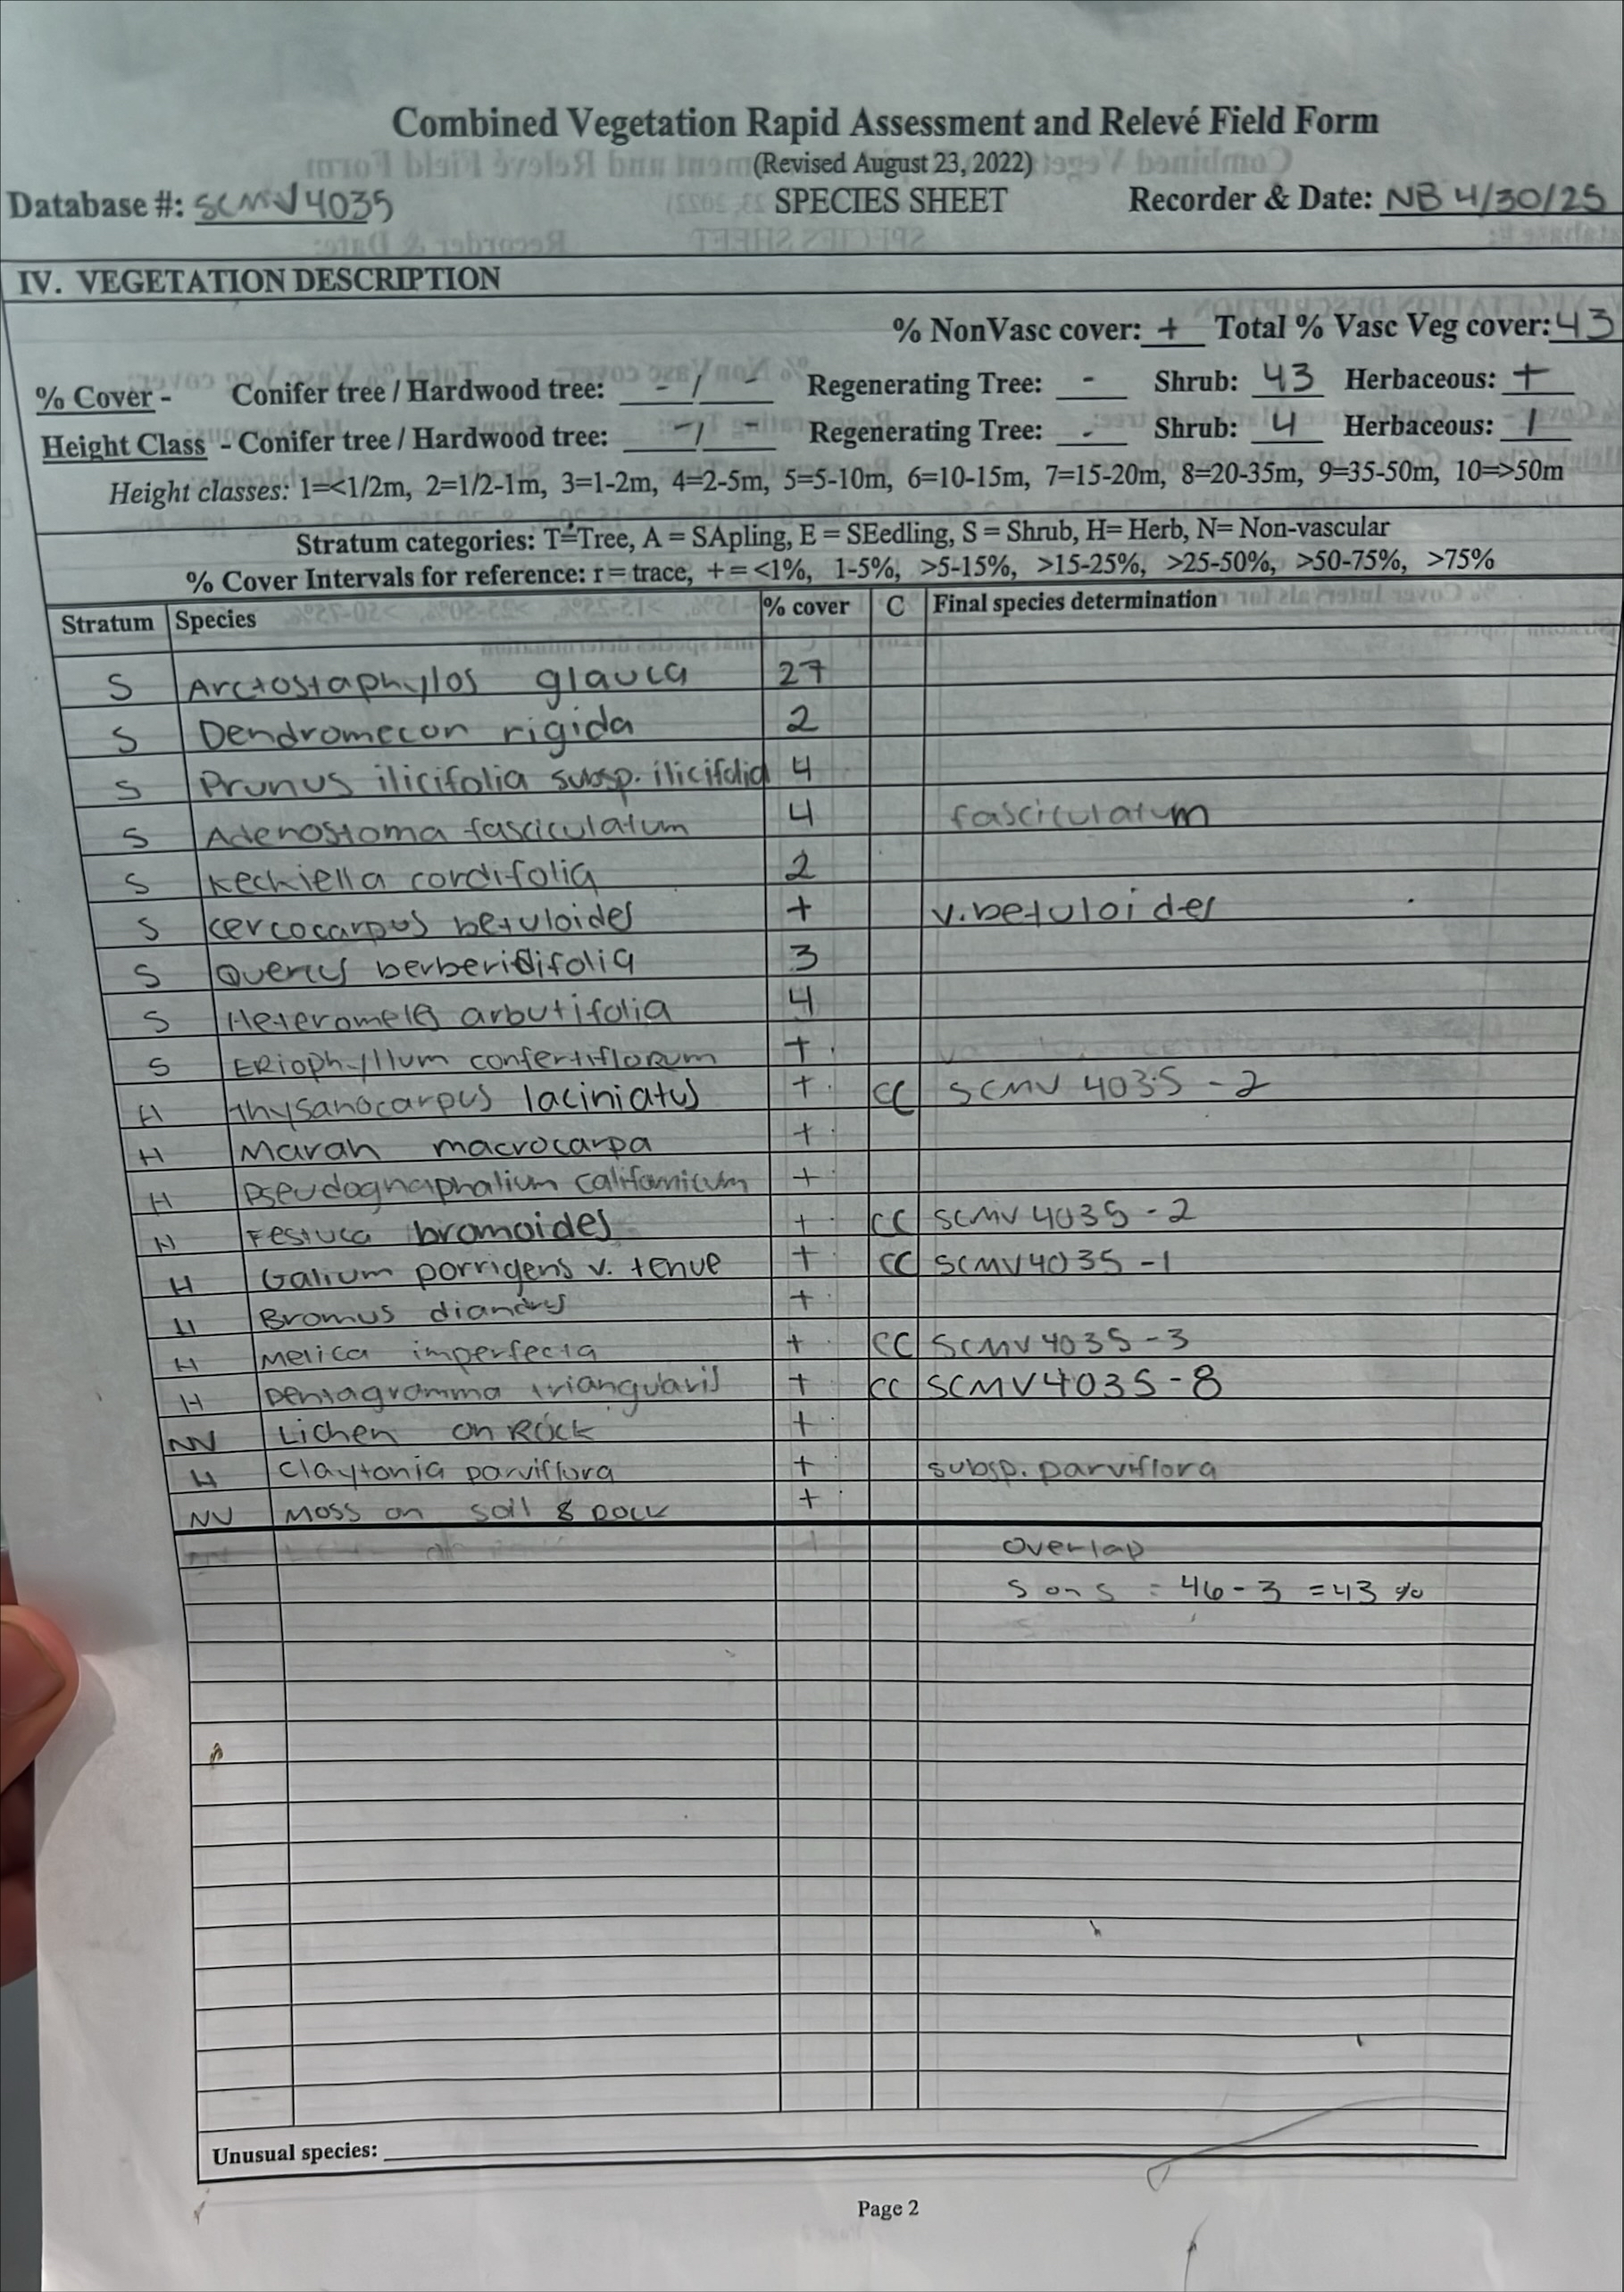 Combined Vegetation Rapid Assessment and Relevé Field Form
(Revised August 23, 2022)
Database #: SCMV4035 SPECIES SHEET Recorder & Date: NB 4/30/25
IV. VEGETATION DESCRIPTION
% NonVasc cover: + Total % Vasc Veg cover: 43
% Cover - Conifer tree / Hardwood tree: - / - Regenerating Tree: - Shrub: 43 Herbaceous: +
Height Class - Conifer tree / Hardwood tree: - / - Regenerating Tree: - Shrub: 4 Herbaceous: 1
Height classes: 1=<1/2m, 2=1/2-1m, 3=1-2m, 4=2-5m, 5=5-10m, 6=10-15m, 7=15-20m, 8=20-35m, 9=35-50m, 10=>50m
Stratum categories: T=Tree, A = SApling, E = SEedling, S = Shrub, H= Herb, N= Non-vascular
% Cover Intervals for reference: r = trace, + = <1%, 1-5%, >5-15%, >15-25%, >25-50%, >50-75%, >75%
Stratum Species % cover C Final species determination
S Arctostaphylos glauca 27
S Dendromecon rigida 2
S Prunus ilicifolia subsp. ilicifolia 4
S Adenostoma fasciculatum 4 fasciculatum
S Keckiella cordifolia 2
S Cercocarpus betuloides + v. betuloides
S Quercus berberidifolia 3
S Heteromeles arbutifolia 4
S Eriophyllum confertiflorum +
H Thysanocarpus laciniatus + CC SCMV 4035 - 2
H Marah macrocarpa +
H Pseudognaphalium californicum +
H Festuca bromoides + CC SCMV 4035 - 2
H Galium porrigens v. tenue + CC SCMV4035 - 1
H Bromus diandrus +
H Melica imperfecta + CC SCMV 4035 - 3
H Pentagramma triangularis + CC SCMV4035 - 8
NV Lichen on Rock +
H Claytonia parviflora + subsp. parviflora
NV Moss on soil & rock +
Overlap
S on S = 46 - 3 = 43 %
Unusual species:
Page 2